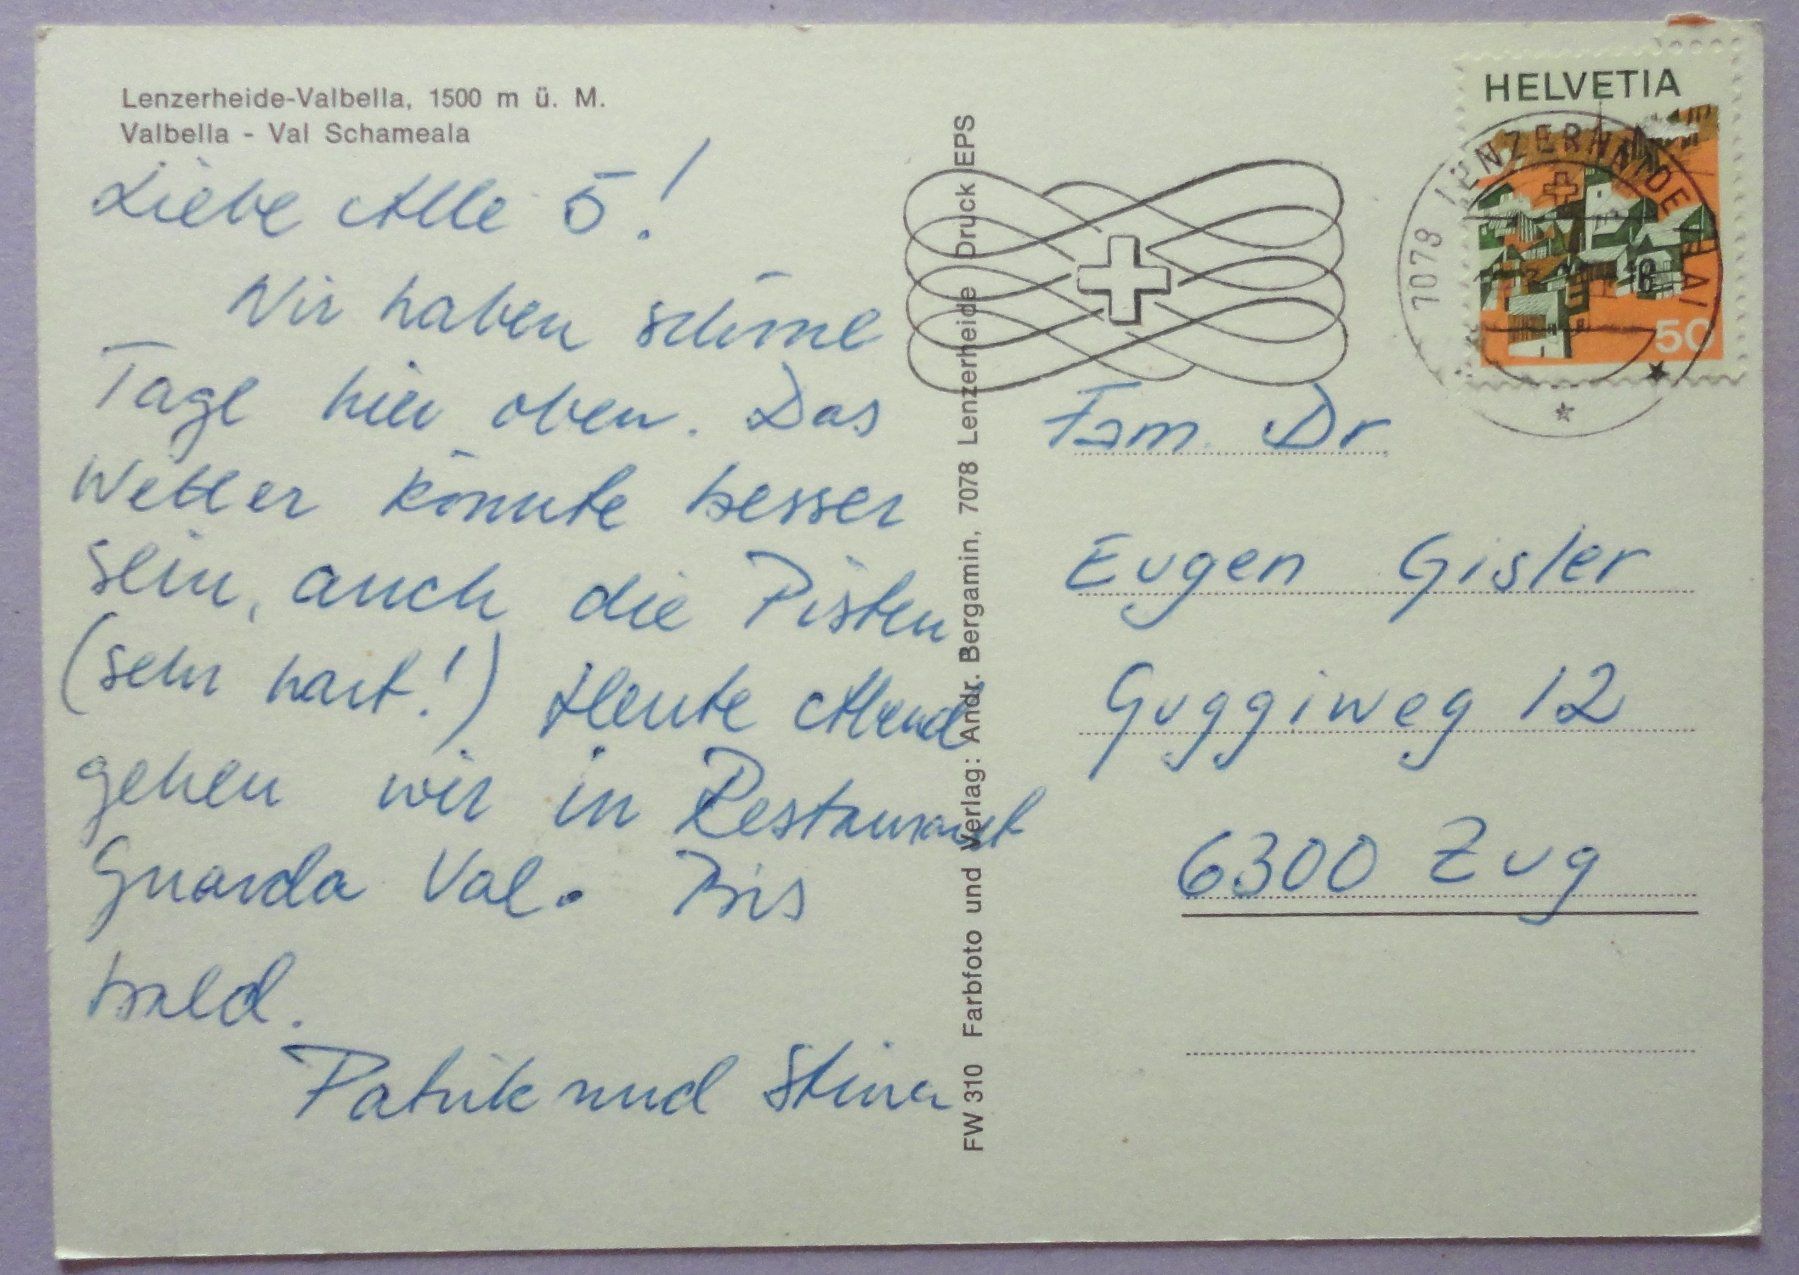 Lenzerheide-Valbella, 1500 m ü. M.
Valbella - Val Schameala
Liebe Alle 5!
Wir haben schöne
Tage hier oben. Das
Wetter könnte besser
sein, auch die Pisten
(sehr hart!) Heute Abend
gehen wir in Restaurant
Guarda Val. Bis
bald.
Patrik und
FW 310 Farbfoto und Verlag: Andr. Bergamin, 7078 Lenzerheide Druck EPS
HELVETIA
50
7078 LENZERHEIDE LAI
Fam. Dr.
Eugen Gisler
Guggiweg 12
6300 Zug